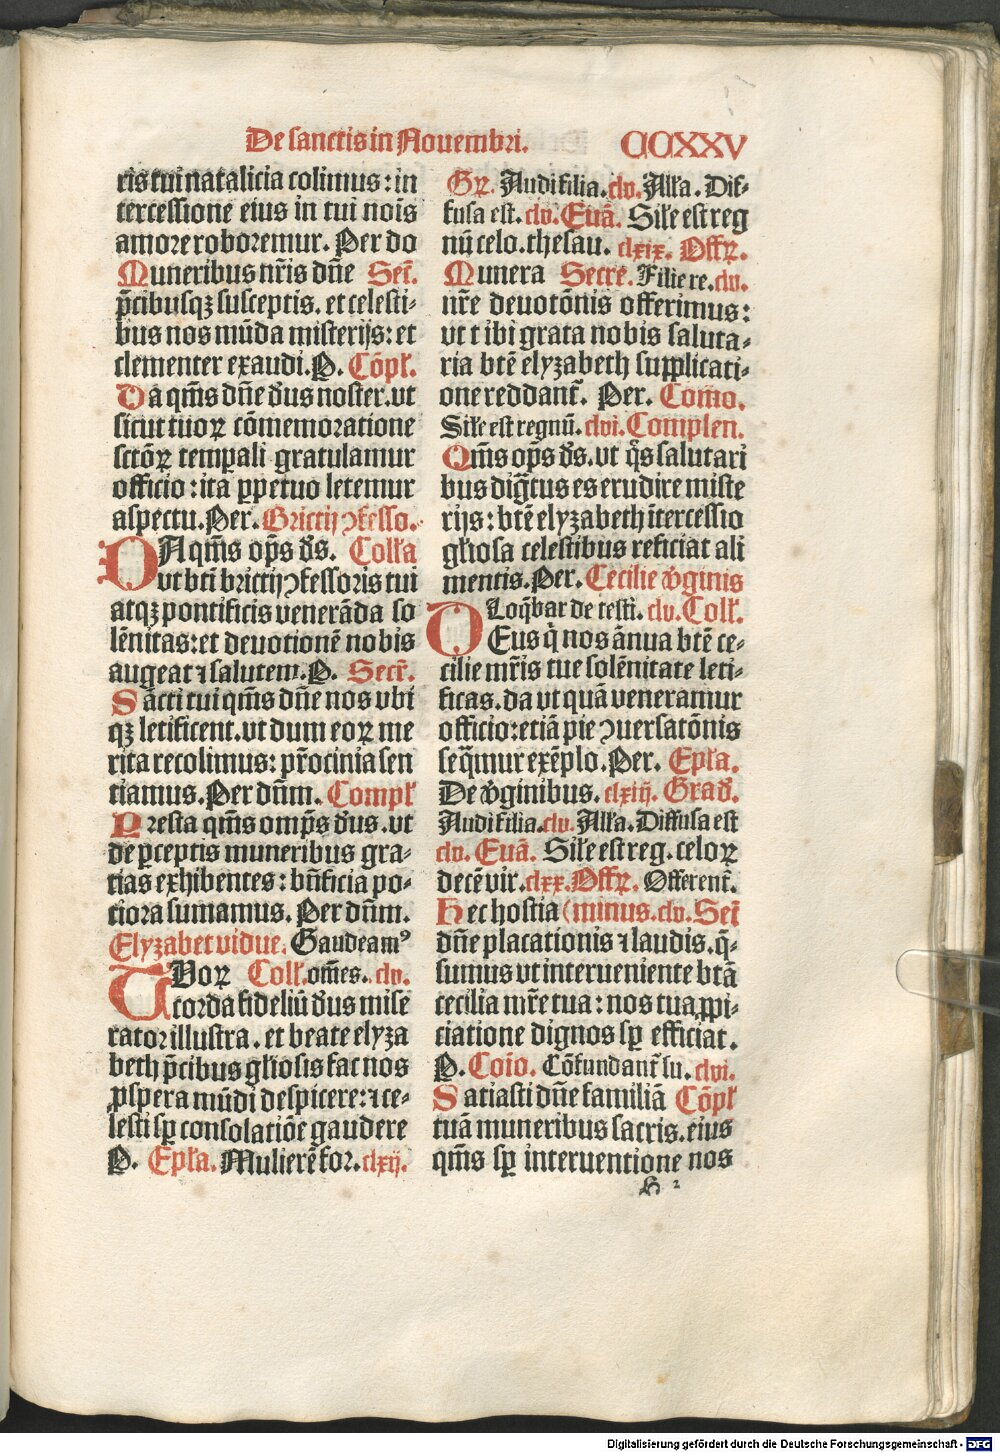 De sanctis in Nouembri. CCXXV
ris tui natalicia colimus: in
tercessione eius in tui nois̄
amore roboremur. Per do
Muneribus nr̄is dn̄e Sec̄.
p̄cibusqꝫ susceptis. et celesti-
bus nos mūda misterijs: et
clementer exaudi. P. Cōpł.
Da qm̄s dn̄e d̄us noster. vt
sicut tuoꝝ cōmemoratione
sctōꝝ tempali gratulamur
officio: ita ꝑpetuo letemur
aspectu. Per. Brictij ↄfesso.
DA qm̄s op̄s d̄s. Colła
vt bt̄i brictij ↄfessoris tui
atqꝫ pontificis venerāda so
lēnitas: et deuotionē nobis
augeat ⁊ salutem. P. Secr̄.
Sācti tui qm̄s dn̄e nos vbi
qꝫ letificent. vt dum eoꝝ me
rita recolimus: pr̄ocinia sen
tiamus. Per dn̄m. Compł
Presta qm̄s omp̄s d̄us. vt
de ꝑceptis muneribus gra-
tias exhibentes: bn̄ficia po-
tiora sumamus. Per dn̄m.
Elyzabet vidue. Gaudeamꝰ
TUoꝝ Coll̄. om̄es. clv.
corda fideliū d̄us mise
rator illustra. et beate elyza
beth p̄cibus gl̄iosis fac nos
ꝓspera mūdi despicere: ⁊ ce-
lesti sꝑ consolatiōe gaudere
P. Epła. Mulierē for. clxij.
Gꝝ. Audi filia. clv. Ałła. Dif-
fusa est. clv. Euā. Siłe est reg
nū celo. thesau. clxix. Offꝝ.
Munera Secre. Filie re. clv.
nr̄e deuotōnis offerimus:
vt tibi grata nobis saluta-
ria btē elyzabeth supplicati-
one reddant̄. Per. Com̄o.
Siłe est regnū. clvi. Complen.
Om̄s op̄s d̄s. vt q̄s salutari
bus dig̅tus es erudire miste
rijs: btē elyzabeth ītercessio
gl̄iosa celestibus reficiat ali
mentis. Per. Cecilie v̄ginis
Loq̄bar de testi. clv. Coll̄.
DEus q̄ nos ānua btē ce-
cilie mr̄is tue solēnitate leti-
ficas. da vt quā veneramur
officio: etiā pie ↄuersatōnis
seq̄mur exēplo. Per. Epła.
De v̄ginibus. clxiij. Grad̄.
Audi filia. clv. Ałła. Diffusa est
clv. Euā. Siłe est reg. celoꝝ
decē vir. clxx. Offꝝ. Offerent̄.
Hec hostia (minus. clv. Sec̄
dn̄e placationis ⁊ laudis. q̄-
sumus vt interueniente btā
cecilia mr̄e tua: nos tua ꝓpi-
ciatione dignos sꝑ efficiat.
P. Coīo. Cōfundant̄ su. clvi.
Satiasti dn̄e familiā Cōpł
tuā muneribus sacris. eius
qm̄s sꝑ interuentione nos
H 2
Digitalisierung gefördert durch die Deutsche Forschungsgemeinschaft - DFG